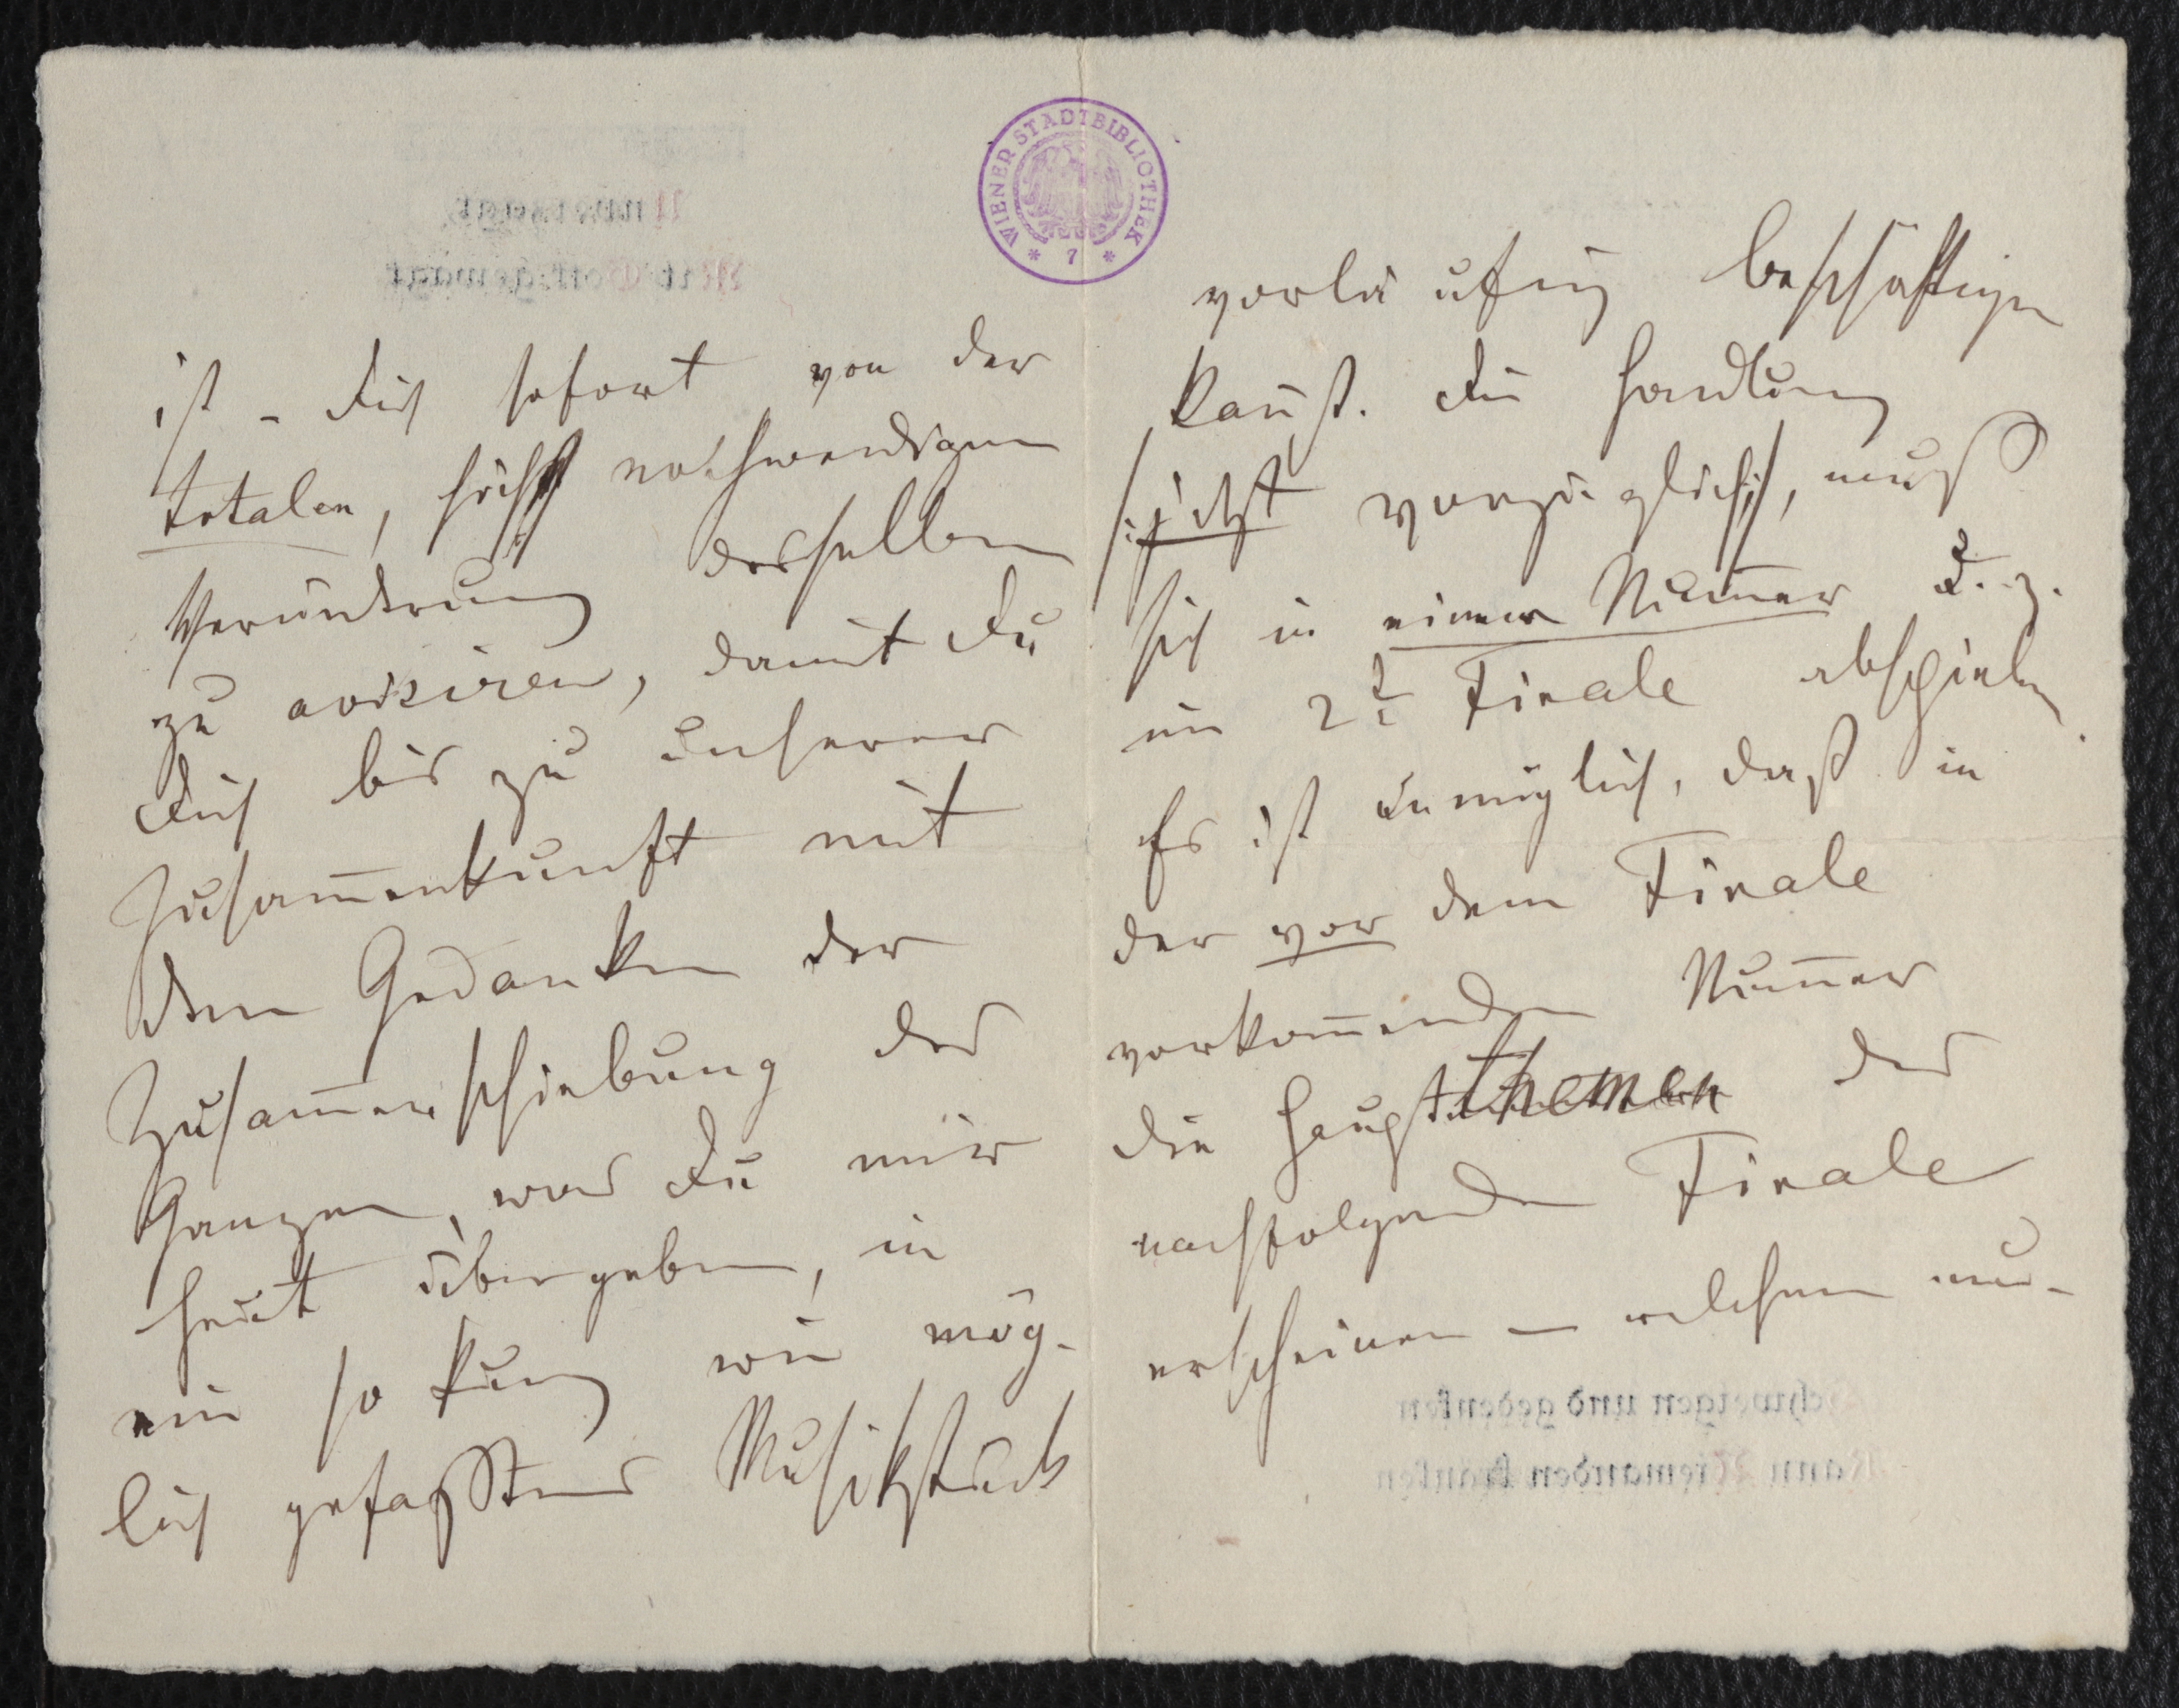 WIENER STADTBIBLIOTHEK
* 7 *
ist – Dich sofort von der
totalen, höchst nothwendigen
Verändrung desselben
zu avisiren, damit Du
Dich bis zu unserer
Zusam̄enkunft mit
dem Gedanken der
Zusam̄enschiebung des
Ganzen, was Du mir
heut übergeben, in
ein so kurz wie mög-
lich gefasstes Musikstück
vorläufig beschäftigen
kannst. Die Handlung
jetzt vorzüglich, muß
sich in einer Num̄er u. z.
im 2t Finale abspielen.
Es ist unmöglich, daß in
der vor dem Finale
vorkom̄enden Num̄er
die Hauptthemen des
nachfolgenden Finale
erscheinen – welchem nu-
Schweigen und gedenken
Kann Niemanden kränken